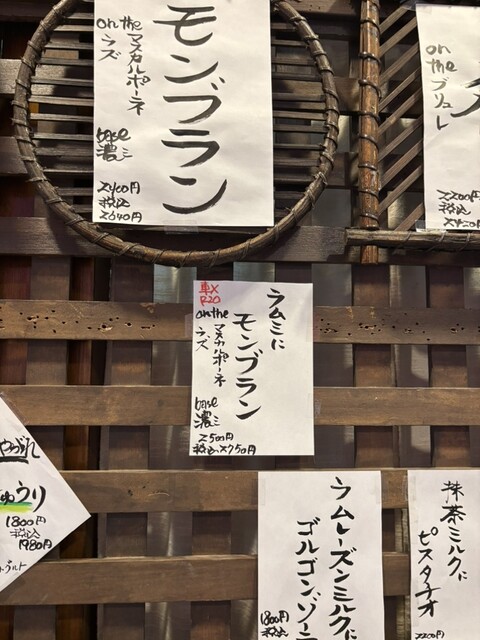 モンブラン
on the
マスカルポーネ
ラズ
base
濃ミ
2400円
税込
2640円
on
the
ブリュレ
2200円
税込
車×
R20
ラムミに
モンブラン
on the
マスカルポーネ
ラズ
base
濃ミ
2500円
税込2750円
ゅうり
1800円
税込
1980円
ラムレーズンミルクに
ゴルゴンゾー
1800円
税込
抹茶ミルクに
ピスタチオ
2200円